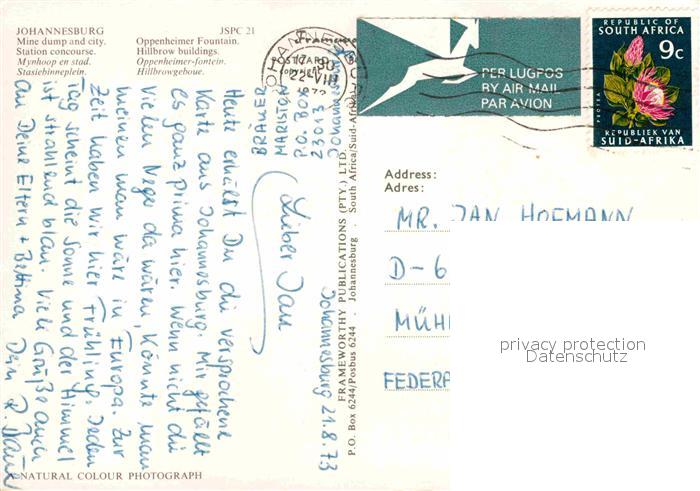 JOHANNESBURG JSPC 21
Mine dump and city. Oppenheimer Fountain.
Station concourse. Hillbrow buildings.
Mynhoop en stad. Oppenheimer-fontein.
Stasiebinneplein. Hillbrowgeboue.
POSTCARD
JOHANNESBURG
VIII
PER LUGPOS
BY AIR MAIL
PAR AVION
REPUBLIC OF
SOUTH AFRICA
9c
PROTEA
REPUBLIEK VAN
SUID-AFRIKA
MARISTON
P.O. BOX
23013
Johannesburg
Johannesburg 21.8.73
Lieber Jan
Heute erhälst Du die versprochene
Karte aus Johannesburg. Mir gefällt
es ganz prima hier. Wenn nicht die
vielen Neger da wären, könnte man
meinen man wäre in Europa. Zur
Zeit haben wir hier Frühling. Jeden
Tag scheint die Sonne und der Himmel
ist strahlend blau. Viele Grüße auch
an Deine Eltern + Bettina Dein R.
FRAMEWORTHY PUBLICATIONS (PTY.) LTD.
P.O. Box 6244/Posbus 6244 . Johannesburg . South Africa/Suid-Afrika
Address:
Adres:
MR. JAN HOFMANN
D-6
MÜH
FEDERA
privacy protection
Datenschutz
NATURAL COLOUR PHOTOGRAPH